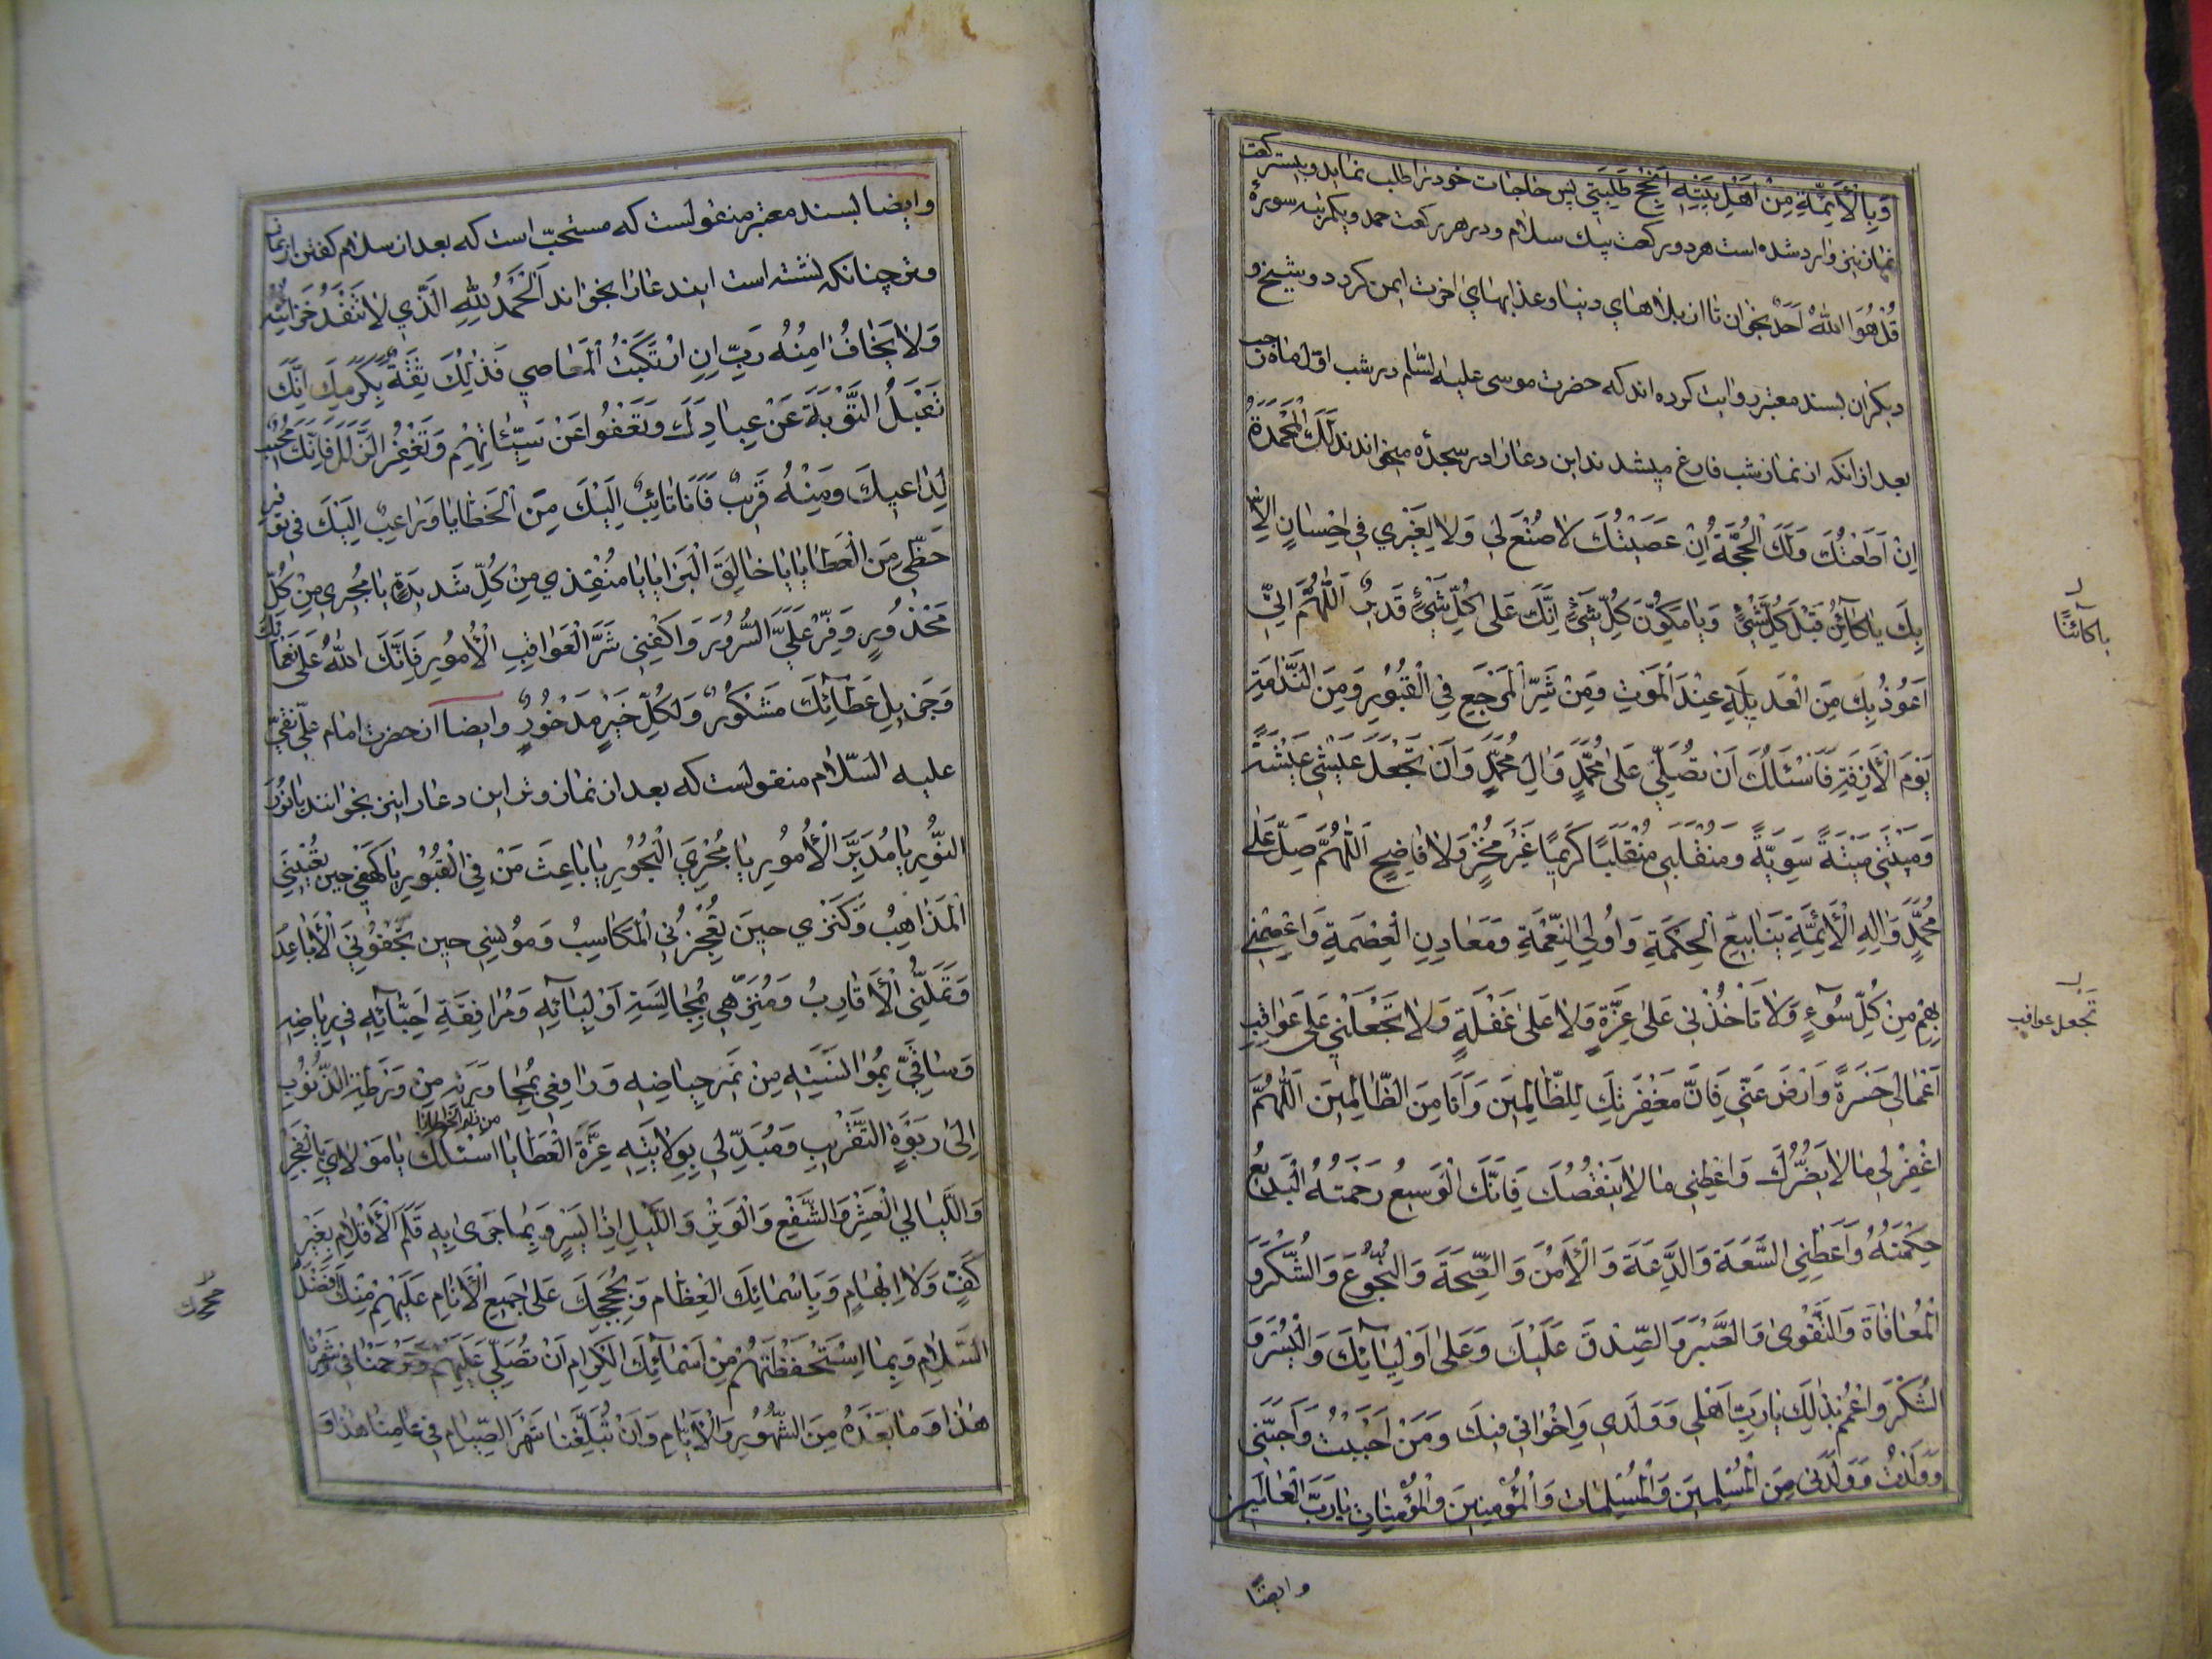 وَبِالْأَئِمَّةِ مِنْ اَهْلِ بَيْتِهِ اَنْجِحْ طَلِبَتِي پس حاجات خود را طلب نمايد و بيست ركعت
نماز نيز وارد شده است هر دو ركعت بيك سلام و در هر ركعت حمد و يكمرتبه سورهٔ
قُلْ هُوَ اللّٰهُ اَحَدٌ بخوان تا از بلاهاي دنيا و عذابهاي اخرت ايمن كردد و شيخ و
ديكران بسند معتبر روايت كرده اند كه حضرت موسى عليه السّلم در شب اوّل ماه رجب
بعد از انكه از نماز شب فارغ ميشدند اين دعا را در سجده ميخواندند لَكَ الْمَحْمَدَةُ
اِنْ اَطَعْتُكَ وَلَكَ الْحُجَّةُ اِنْ عَصَيْتُكَ لاٰ صُنْعَ لِي وَلاٰ لِغَيْرِي فِي اِحْسٰانٍ اِلاّٰ
بِكَ يٰا كٰائِنُ قَبْلَ كُلِّ شَيْءٍ وَيٰا مُكَوِّنَ كُلِّ شَيْءٍ اِنَّكَ عَلىٰ كُلِّ شَيْءٍ قَدِيرٌ اَللّٰهُمَّ اِنِّي
اَعُوذُ بِكَ مِنَ الْعَدِيلَةِ عِنْدَ الْمَوْتِ وَمِنْ شَرِّ الْمَرْجَعِ فِي الْقُبُورِ وَمِنَ النَّدٰامَةِ
يَوْمَ الْأٰزِفَةِ فَاَسْئَلُكَ اَنْ تُصَلِّيَ عَلىٰ مُحَمَّدٍ وَالِ مُحَمَّدٍ وَاَنْ تَجْعَلَ عَيْشِي عِيْشَةً
وَمِيْتَتِي مِيْتَةً سَوِيَّةً وَمُنْقَلَبِي مُنْقَلَبًا كَرِيمًا غَيْرَ مُخْزٍ وَلاٰ فٰاضِحٍ اَللّٰهُمَّ صَلِّ عَلىٰ
مُحَمَّدٍ وَالِهِ الْأَئِمَّةِ يَنٰابِيعِ الْحِكْمَةِ وَاُولِي النِّعْمَةِ وَمَعٰادِنِ الْعِصْمَةِ وَاعْصِمْنِي
بِهِمْ مِنْ كُلِّ سُوءٍ وَلاٰ تَأْخُذْنِي عَلىٰ غِرَّةٍ وَلاٰ عَلىٰ غَفْلَةٍ وَلاٰ تَجْعَلْنِي عَلىٰ عَوٰاقِبِ
اَعْمٰالِي حَسْرَةً وَارْضَ عَنِّي فَاِنَّ مَغْفِرَتَكَ لِلظّٰالِمِينَ وَاَنَا مِنَ الظّٰالِمِينَ اَللّٰهُمَّ
اغْفِرْ لِي مٰا لاٰ يَضُرُّكَ وَاعْطِنِي مٰا لاٰ يَنْقُصُكَ فَاِنَّكَ الْوَسِيعُ رَحْمَتُهُ الْبَدِيعُ
حِكْمَتُهُ وَاَعْطِنِي السَّعَةَ وَالدَّعَةَ وَالْأَمْنَ وَالصِّحَّةَ وَالنُّجُوعَ وَالشُّكْرَ وَ
الْمُعٰافٰاةَ وَالتَّقْوىٰ وَالصَّبْرَ وَالصِّدْقَ عَلَيْكَ وَعَلىٰ اَوْلِيٰائِكَ وَالْيُسْرَ وَ
الشُّكْرَ وَاعْمُمْ بِذٰلِكَ يٰا رَبِّ اَهْلِي وَوَلَدِي وَاِخْوٰانِي فِيكَ وَمَنْ اَحْبَبْتُ وَاَحَبَّنِي
وَوَلَدْتُ وَوَلَدَنِي مِنَ الْمُسْلِمِينَ وَالْمُسْلِمٰاتِ وَالْمُؤْمِنِينَ وَالْمُؤْمِنٰاتِ يٰا رَبَّ الْعٰالَمِينَ
يا كائنًا
تجعل عواقب
وايضًا
وايضا بسند معتبر منقولست كه مستحبّ است كه بعد از سلام كفتن از نماز
وتر چنانكه نشسته است ايندعا را بخواند اَلْحَمْدُ لِلّٰهِ الَّذِي لاٰ تَنْفَدُ خَزٰائِنُهُ
وَلاٰ يَخٰافُ اٰمِنُهُ رَبِّ اِنِ ارْتَكَبْتُ الْمَعٰاصِي فَذٰلِكَ ثِقَةٌ بِكَرَمِكَ اِنَّكَ
تَقْبَلُ التَّوْبَةَ عَنْ عِبٰادِكَ وَتَعْفُوا عَنْ سَيِّئٰاتِهِمْ وَتَغْفِرُ الزَّلَلَ فَاِنَّكَ مُجِيبٌ
لِدٰاعِيكَ وَمِنْهُ قَرِيبٌ فَاَنَا تٰائِبٌ اِلَيْكَ مِنَ الْخَطٰايٰا وَرٰاغِبٌ اِلَيْكَ فِي تَوْفِيرِ
حَظِّي مِنَ الْعَطٰايٰا يٰا خٰالِقَ الْبَرٰايٰا يٰا مُنْقِذِي مِنْ كُلِّ شَدِيدَةٍ يٰا مُجِيرِي مِنْ كُلِّ
مَحْذُورٍ وَفِّرْ عَلَيَّ السُّرُورَ وَاكْفِنِي شَرَّ الْعَوٰاقِبِ الْأُمُورِ فَاِنَّكَ اللّٰهُ عَلىٰ نَعْمٰائِكَ
وَجَزِيلِ عَطٰائِكَ مَشْكُورٌ وَلِكُلِّ خَيْرٍ مَدْخُورٌ وايضا از حضرت امام علي نقي
عليه السّلام منقولست كه بعد از نماز وتر اين دعا را نيز بخوانند يٰا نُورَ
النُّورِ يٰا مُدَبِّرَ الْأُمُورِ يٰا مُجْرِيَ الْبُحُورِ يٰا بٰاعِثَ مَنْ فِي الْقُبُورِ يٰا كَهْفِي حِينَ تُعْيِينِي
الْمَذٰاهِبُ وَكَنْزِي حِينَ تُعْجِزُنِي الْمَكٰاسِبُ وَمُونِسِي حِينَ تَجْفُونِي الْأَبٰاعِدُ
وَتَمَلُّنِي الْأَقٰارِبُ وَمُنَزِّهِي بِمُجٰالَسَةِ اَوْلِيٰائِهِ وَمُرٰافَقَةِ اَحِبّٰائِهِ فِي رِيٰاضِهِ
وَسٰاقِيَّ بِمُوٰانَسَتِهِ مِنْ نَمِيرِ حِيٰاضِهِ وَرٰافِعِي بِمُجٰاوَرَتِهِ مِنْ وَرْطَةِ الذُّنُوبِ
اِلىٰ رَبْوَةِ التَّقْرِيبِ وَمُبَدِّلِي بِوِلاٰيَتِهِ عِزَّةَ الْعَطٰايٰا من ذلة الخطايا اَسْئَلُكَ يٰا مَوْلاٰيَ بِالْفَجْرِ
وَاللَّيٰالِي الْعَشْرِ وَالشَّفْعِ وَالْوَتْرِ وَاللَّيْلِ اِذٰا يَسْرِ وَبِمٰا جَرىٰ بِهِ قَلَمُ الْأَقْلاٰمِ بِغَيْرِ
كَفٍّ وَلاٰ اِبْهٰامٍ وَبِاَسْمٰائِكَ الْعِظٰامِ وَبِحُجَجِكَ عَلىٰ جَمِيعِ الْأَنٰامِ عَلَيْهِمْ مِنْكَ اَفْضَلُ
السَّلاٰمِ وَبِمَا اسْتَحْفَظْتَهُمْ مِنْ اَسْمٰائِكَ الْكِرٰامِ اَنْ تُصَلِّيَ عَلَيْهِمْ وَتَرْحَمَنٰا فِي شَهْرِنٰا
هٰذٰا وَمٰا بَعْدَهُ مِنَ الشُّهُورِ وَالْأَيّٰامِ وَاَنْ تُبَلِّغَنٰا شَهْرَ الصِّيٰامِ فِي عٰامِنٰا هٰذٰا وَ